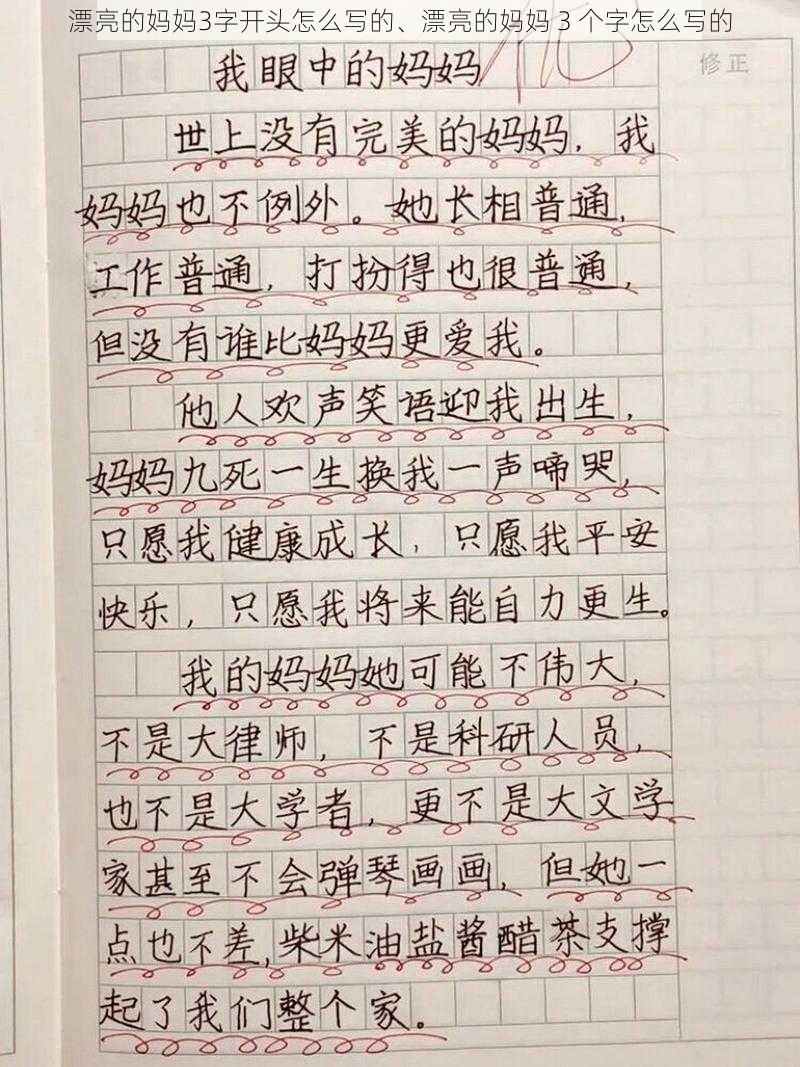 漂亮的妈妈3字开头怎么写的、漂亮的妈妈 3 个字怎么写的
修正
我眼中的妈妈
世上没有完美的妈妈，我
妈妈也不例外。她长相普通，
工作普通，打扮得也很普通，
但没有谁比妈妈更爱我。
他人欢声笑语迎我出生，
妈妈九死一生换我一声啼哭，
只愿我健康成长，只愿我平安
快乐，只愿我将来能自力更生。
我的妈妈她可能不伟大，
不是大律师，不是科研人员，
也不是大学者，更不是大文学
家甚至不会弹琴画画，但她一
点也不差，柴米油盐酱醋茶支撑
起了我们整个家。